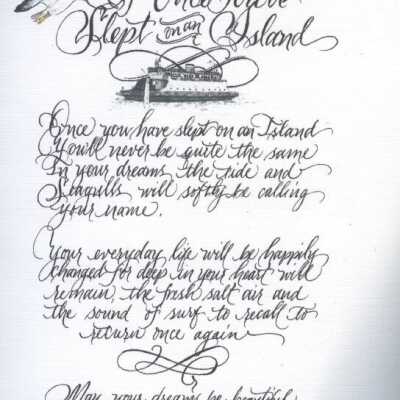 If Once You've
Slept on an Island
Once you have slept on an Island
You'll never be quite the same
In your dreams the tide and
Seagulls will softly be calling
your name.
Your everyday life will be happily
changed for deep in your heart will
remain the fresh salt air and
the sound of surf to recall to
return once again
May your dreams be beautiful